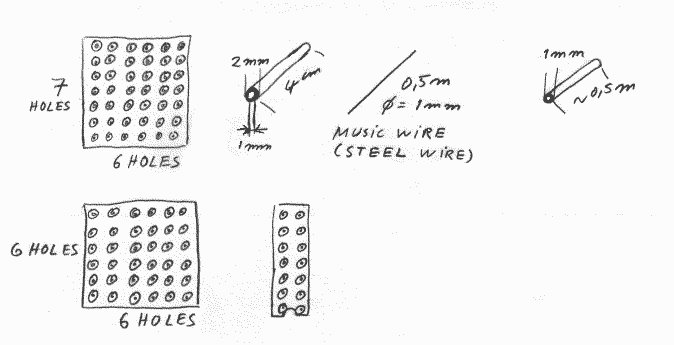 7
HOLES
6 HOLES
2mm
4 cm
1mm
0,5m
φ = 1mm
MUSIC WIRE
(STEEL WIRE)
1mm
~0,5m
6 HOLES
6 HOLES